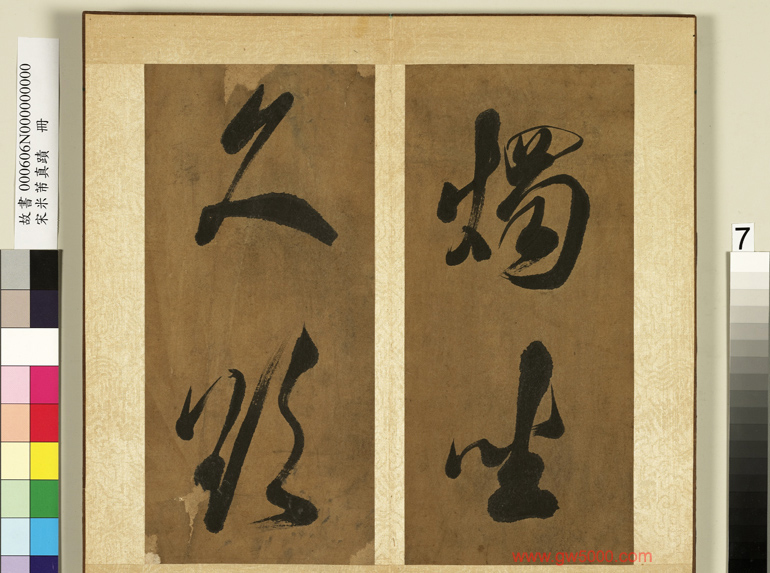 燭坐
久
故書 000606N000000000
宋米芾真蹟 冊
7
www.gw5050.com